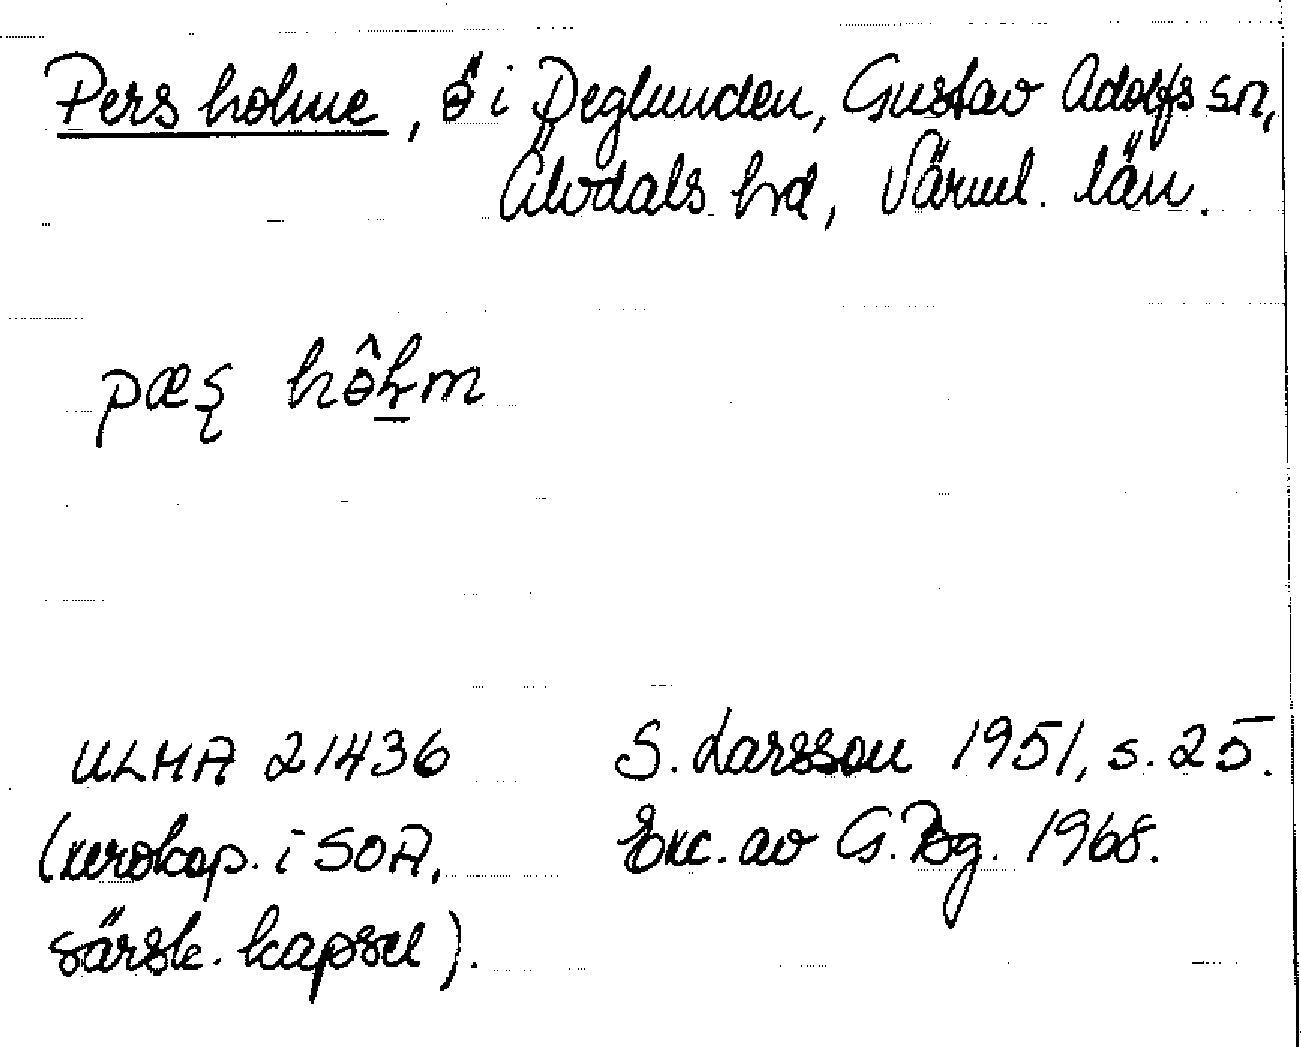 Pers holme, ö i Deglunden, Gustav Adolfs sn,
Älvdals hd, Värml. län.
pæʂ
ULMA 21436 S. Larsson 1951, s. 25.
(xerokop. i SOA, Exc. av G. Bg. 1968.
särsk. kapsel).